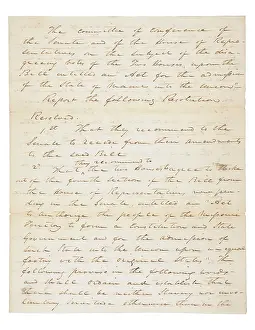 The committee of conference of
the Senate and of the House of Repre-
sentatives on the subject of the disa-
greeing votes of the Two Houses, upon the
Bill entitled an Act for the admission
of the State of Maine into the Union
Report the following Resolution
Resolved.
1st That they recommend to the
Senate to recede from their amendments
to the said Bill
2 That the two Houses
of the section of the Bill from
the House of Representatives now pen-
ding in the Senate entitled an "Act
to authorize the people of the Missouri
Territory to form a Constitution and State
Government and for the admission of
such State into the Union upon an equal
footing with the original States" the
following proviso in the following words
and shall ordain and establish that
there shall be neither Slavery nor invo-
luntary servitude otherwise than in the